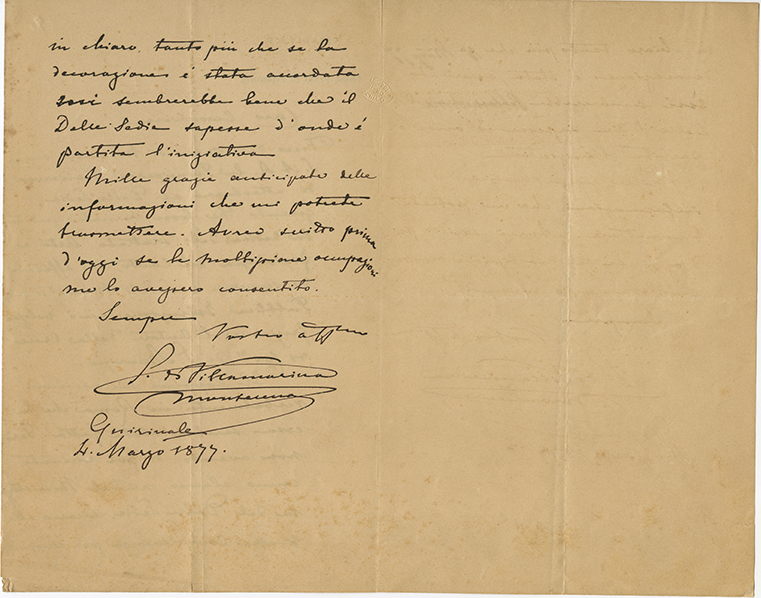 in chiaro, tanto più che se la
decorazione é stata accordata
così sembrerebbe bene che il
Delle Sedie sapesse d'onde é
partita l'iniziativa
Mille grazie anticipate delle
informazioni che mi potrete
trasmettere. Avrei scritto prima
d'oggi se le moltissime occupazioni
me lo avessero consentito.
Sempre
Vostro affmo
di Villamarina
Montereno
Quirinale
4. Marzo 1877.